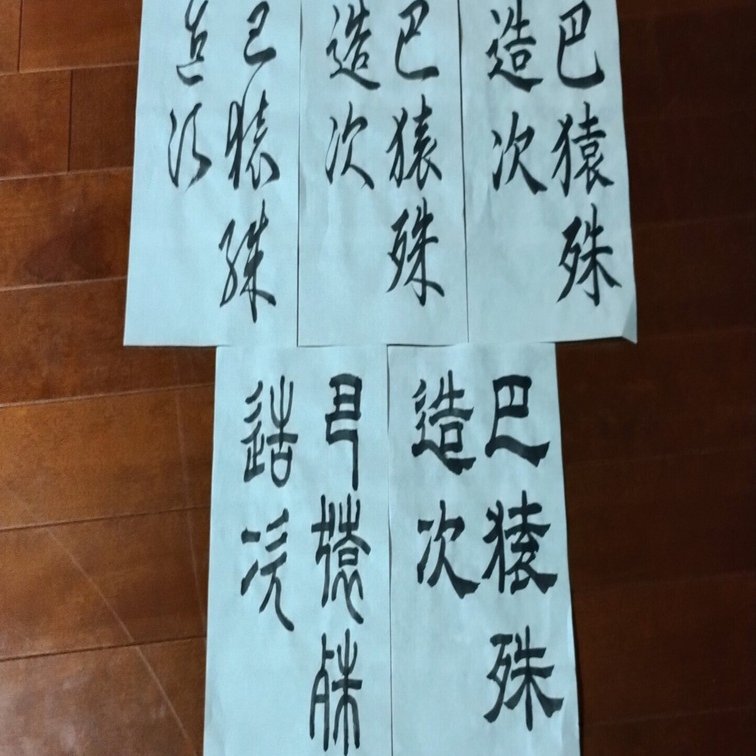 巴猿殊
造次
巴猿殊
造次
巴猿殊
造次
巴猿殊
造次
巴猿殊
造次